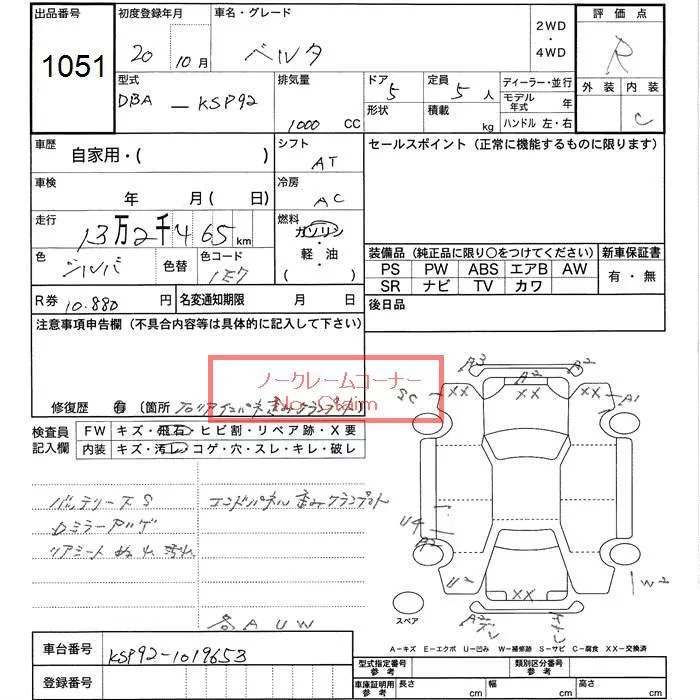 出品番号 初度登録年月 車名・グレード 2WD ・ 4WD 評価点
1051 20年 10月 ベルタ R
型式 排気量 ドア 定員 ディーラー・並行 外装 内装
DBA - KSP92 1000 CC 5 5人 モデル年式 年 C
形状 積載 kg ハンドル 左・右
車歴 自家用・( ) シフト AT セールスポイント(正常に機能するものに限ります)
車検 年 月( 日) 冷房 AC
走行 13万2千465km 燃料 ガソリン・軽・油 ( )
色 シルバ 色替 色コード 1E7
装備品(純正品に限り○をつけてください) 新車保証書
PS PW ABS エアB AW 有・無
SR ナビ TV カワ
R券 10.880円 名変通知期限 月 日 後日品
注意事項申告欄(不具合内容等は具体的に記入して下さい)
ノークレームコーナー
No Claim
修復歴 有 〔箇所
検査員記入欄 FW キズ・飛石・ヒビ割・リペア跡・X要
内装 キズ・汚レ・コゲ・穴・スレ・キレ・破レ
バッテリーナS エンドパネル歪みクランプ
ロミラーアルゲ
リアシート 汚れ
各AUW
A3 A2 A2
SC XX XX A1
U4
A2
U2 XX W2
スペア
A-キズ E-エクボ U-凹み W-補修跡 S-サビ C-腐食 XX-交換済
車台番号 KSP92-1019653
登録番号
型式指定番号 参考 類別区分番号 参考
車庫証明用 参考 長さ cm 幅 cm 高さ cm